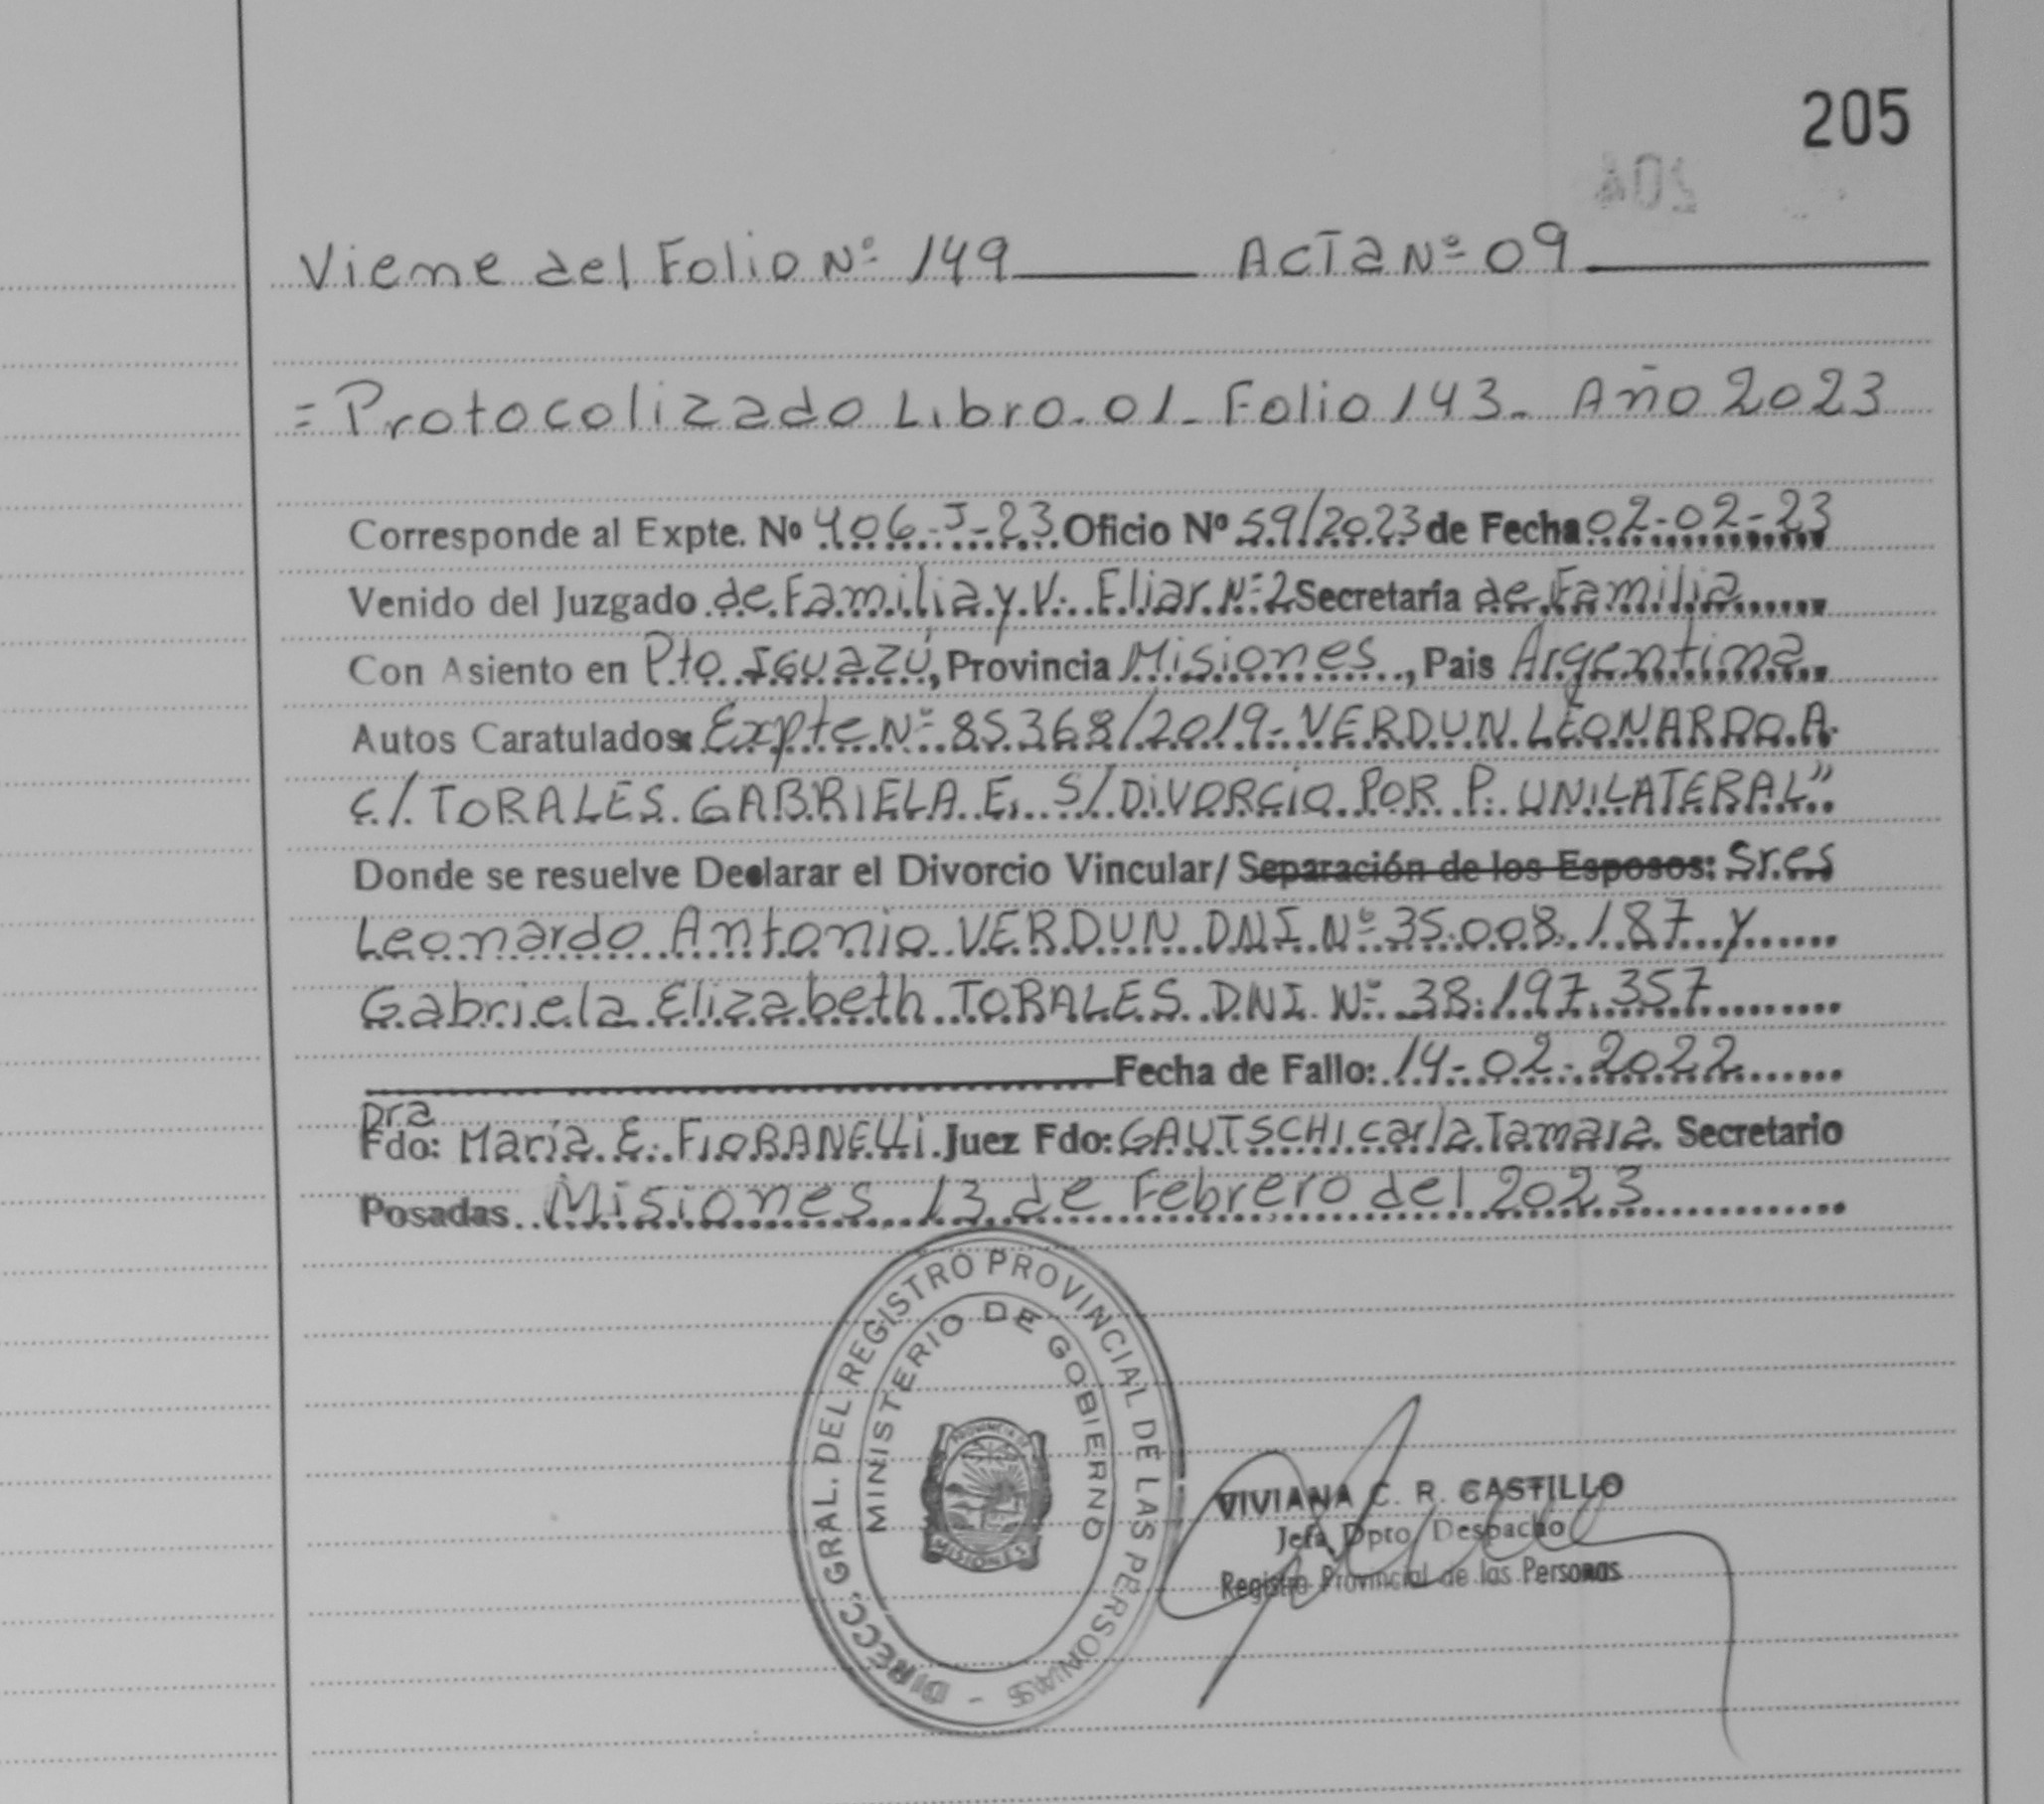 205
204
Viene del Folio Nº 149 Acta Nº 09
= Protocolizado Libro. 01_ Folio 143_ Año 2023
Corresponde al Expte. Nº 406-J-23 Oficio Nº 59/2023 de Fecha 02-02-23
Venido del Juzgado de Familia y V. Fliar Nº 2 Secretaría de Familia
Con Asiento en Pto Iguazú, Provincia Misiones, Pais Argentina.
Autos Caratulados: Expte Nº 85368/2019- VERDUN LEONARDO A.
C/ TORALES GABRIELA E. S/ DIVORCIO POR P. UNILATERAL"
Donde se resuelve Declarar el Divorcio Vincular/ Separación de los Esposos: Sres
Leonardo Antonio VERDUN DNI Nº 35.008.187 y
Gabriela Elizabeth TORALES DNI Nº 38.197.357
Fecha de Fallo: 14-02-2022
Dra
Fdo: María E. FIORANELLI Juez Fdo: GAUTSCHI Carla Tamara. Secretario
Posadas Misiones 13 de Febrero del 2023
DIRECC. GRAL. DEL REGISTRO PROVINCIAL DE LAS PERSONAS -
MINISTERIO DE GOBIERNO
PROVINCIA DE
MISIONES
VIVIANA C. R. CASTILLO
Jefa Dpto Despacho
Registro Provincial de las Personas